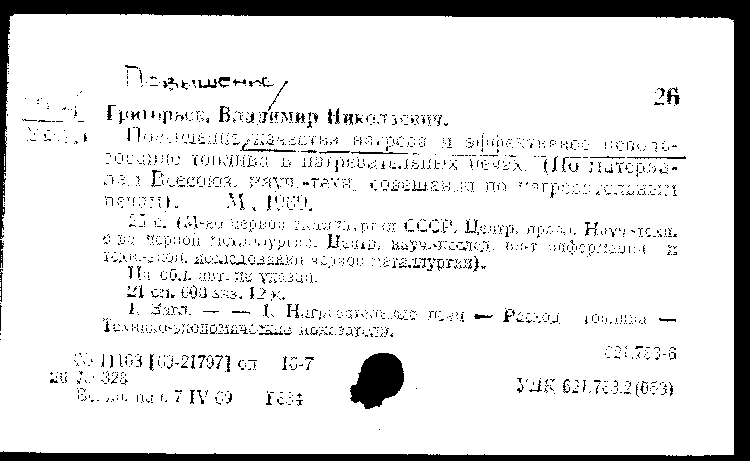 Повышение
26
Григорьев, Владимир Николаевич.
Повышение качества нагрева и эффективное исполь-
зование топлива в нагревательных печах. (По материа-
лам Всесоюз. науч.-техн. совещания по нагревательным
печам). М., 1969.
25 с. (М-во черной металлургии СССР. Центр. правл. Науч.-техн.
о-ва черной металлургии. Центр. науч.-исслед. ин-т информации и
техн.-экон. исследований черной металлургии).
На обл. авт. не указан.
21 см. 600 экз. 12 к.
1. Загл. — — 1. Нагревательные печи — Расход топлива —
Технико-экономические показатели.
621.783-6
[69-21797] 16-7
УДК 621.783.2(063)
7 IV 69